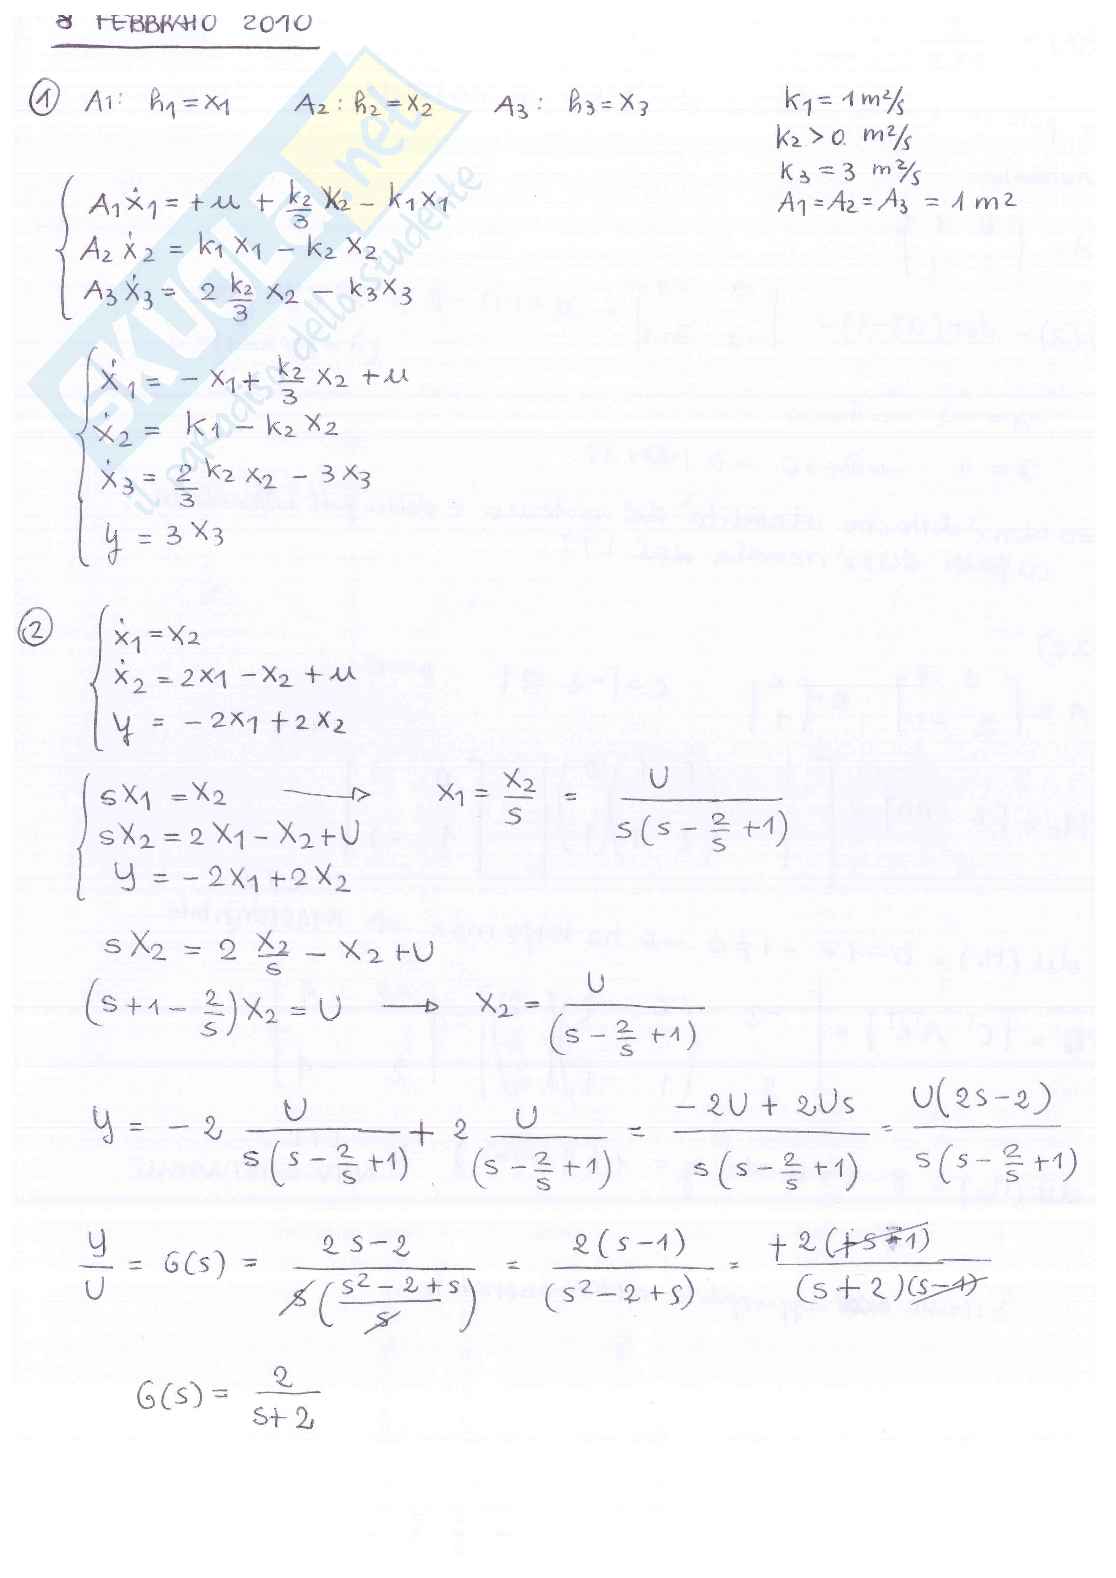 8 FEBBRAIO 2010
① A1: h1=x1 A2: h2=x2 A3: h3=x3
k1 = 1 m²/s
k2 > 0 m²/s
k3 = 3 m²/s
A1=A2=A3 = 1 m²
A1ẋ1 = +u + k2/3 x2 - k1x1
A2ẋ2 = k1x1 - k2x2
A3ẋ3 = 2 k2/3 x2 - k3x3
ẋ1 = - x1 + k2/3 x2 + u
ẋ2 = k1 - k2x2
ẋ3 = 2/3 k2x2 - 3x3
y = 3x3
② ẋ1 = x2
ẋ2 = 2x1 - x2 + u
y = -2x1 + 2x2
sX1 = X2 → X1 = X2/s = U/(s(s - 2/s + 1))
sX2 = 2X1 - X2 + U
y = -2X1 + 2X2
sX2 = 2 X2/s - X2 + U
(s + 1 - 2/s)X2 = U → X2 = U/(s - 2/s + 1)
y = -2 U/(s(s - 2/s + 1)) + 2 U/(s - 2/s + 1) = (-2U + 2Us)/(s(s - 2/s + 1)) = U(2s-2)/(s(s - 2/s + 1))
y/U = G(s) = (2s-2)/(s((s²-2+s)/s)) = 2(s-1)/(s²-2+s) = +2(+s-1)/((s+2)(s-1))
G(s) = 2/(s+2)
SKUOLA.net
il paradiso dello studente